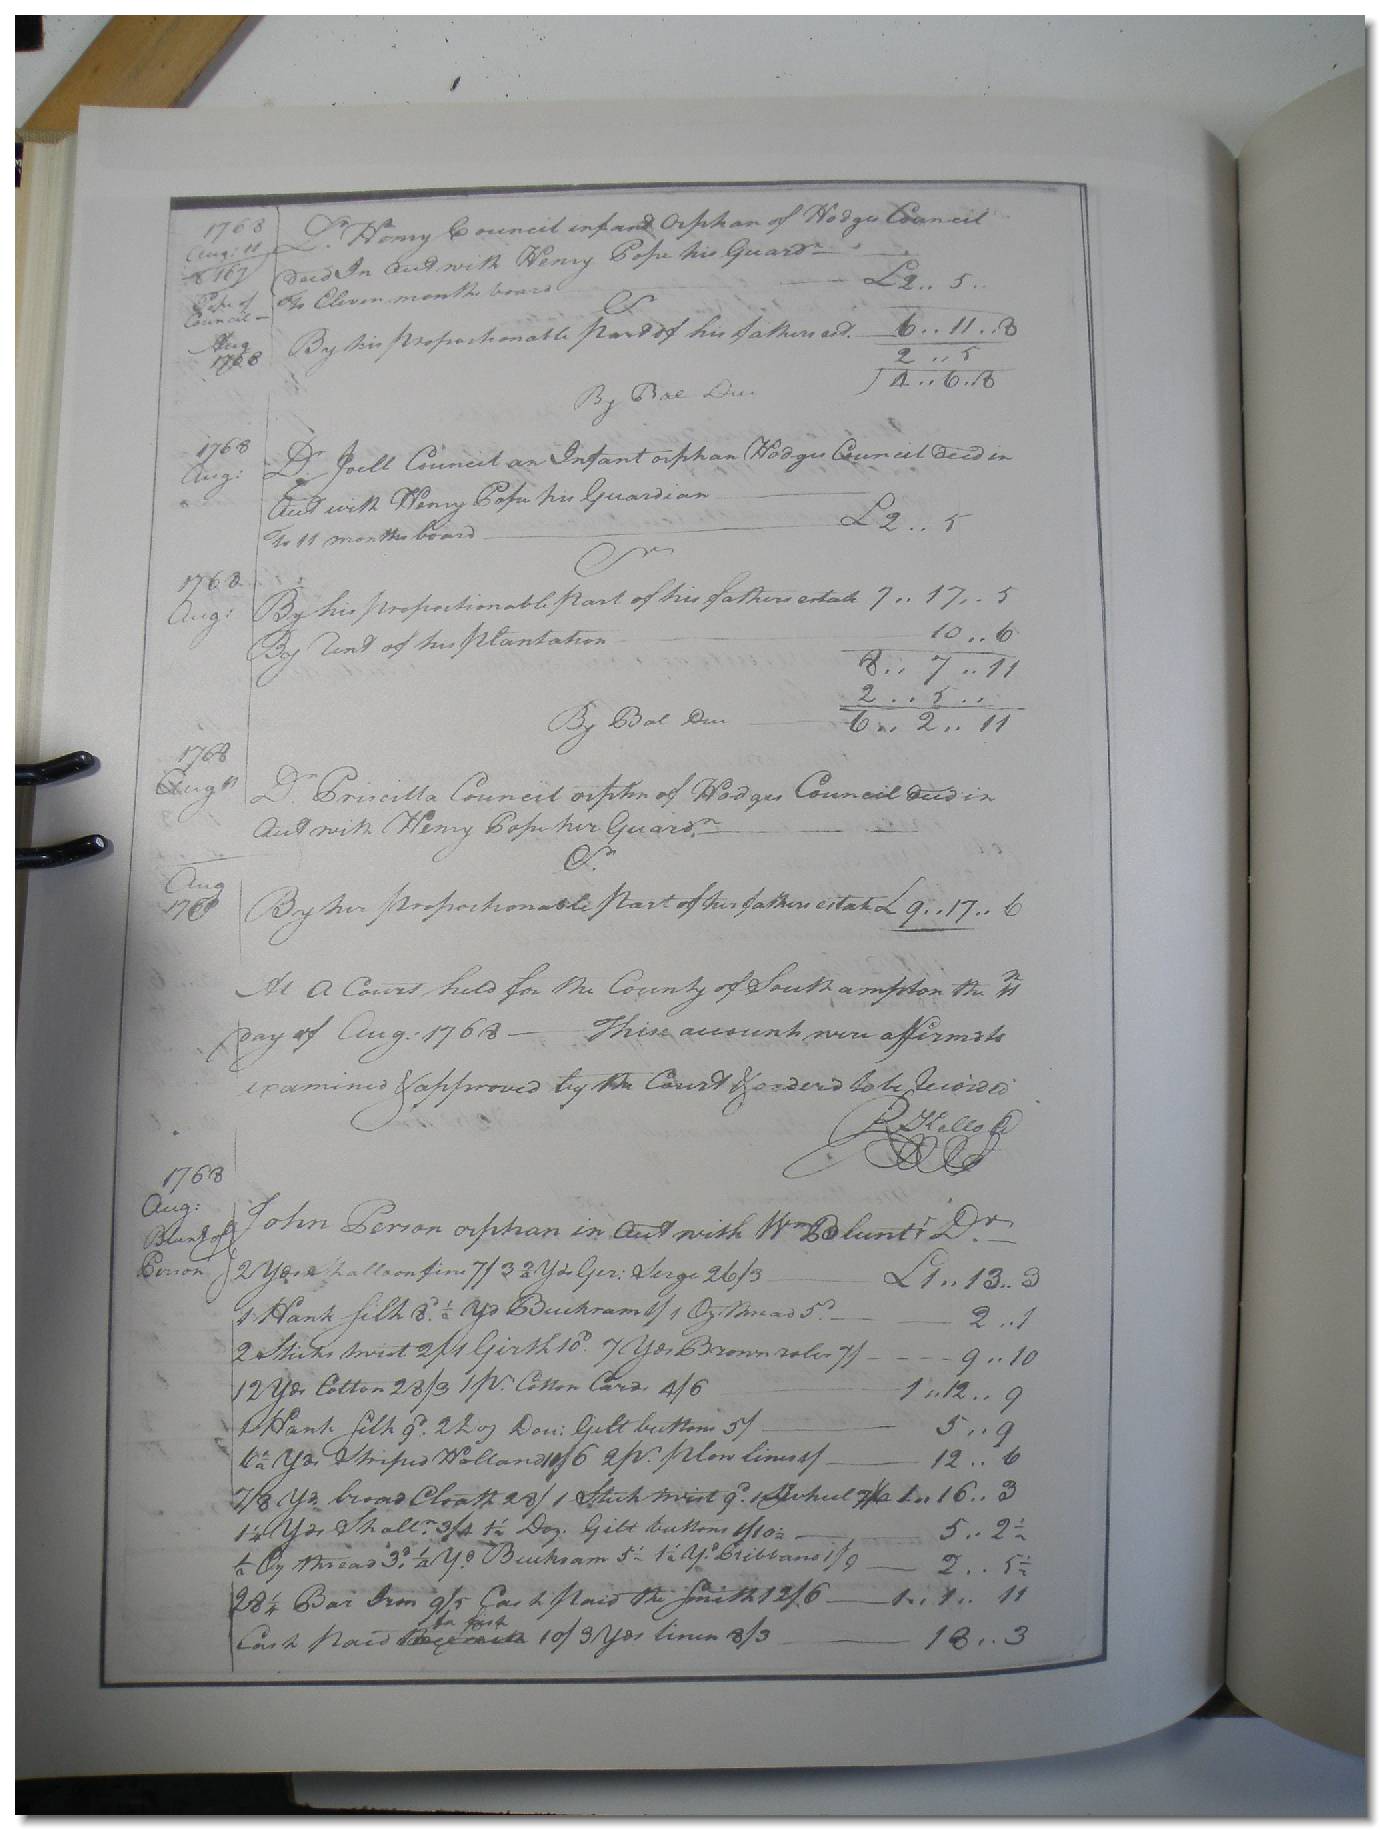 1768
Aug: 11
Dr. Henry Council infant Orphan of Hodges Council
Decd In Acct with Henry Pope his Guardn
To Eleven months board £2..5..
Pope of
Council
Cr
Aug
1768
By his proportionable part of his fathers est. 6..11..8
2..5
By Bal Due 4..6..8
1768
Aug:
Dr Joell Council an Infant orphan Hodges Council Decd in
Acct with Henry Pope his Guardian
To 11 months board £2..5
Cr
1768
Aug:
By his proportionable part of his fathers estate 7..17..5
By Rent of his plantation 10..6
8..7..11
2..5..
By Bal Due 6..2..11
1768
Aug 11
Dr Priscilla Council orphn of Hodges Council Decd in
Acct with Henry Pope her Guardn
Cr
Aug
1768
By her proportionable part of her fathers estate £9..17..6
At a Court held for the County of Southampton the 11th
day of Aug: 1768 — These accounts were affirmd to
examined & approved by the Court & orderd to be Recorded
R Kello
1768
Aug:
Blunt of
Person
John Person orphan in Acct with Wm Blunt Dr
2 Yds Shalloon fine 7/ 3 ¾ Yds Ger: Serge 26/3 £1..13..3
1 Hank silk 8d ½ Yd Buckram 1/ 1 Oz: thread 5d 2..1
2 Sticks twist 2/ 1 Girth 10d 7 Yds Brown roles 7/ 9..10
12 Yds Cotton 28/3 1 pr Cotton Cards 4/6 1..12..9
1 Hank silk 9d 2 Doz: Gilt buttons 5/ 5..9
Yds Striped Holland 10/6 2 pr plow lines 12..6
7/8 Yd broad Cloath 28/ 1 Stick twist 9d 1 wheel 1..16..3
1¼ Yds Shalln 3/4 1½ Doz. Gilt buttons 1/10½ 5..2½
½ Oz thread 3d ½ Yd Buckram 5½ 1½ Yd Ribband 1/9 2..5½
28¼ Bar Iron 9/5 Cash paid the Smith 12/6 1..1..11
Cash paid for fish 10/ 3 Yds linen 8/3 18..3